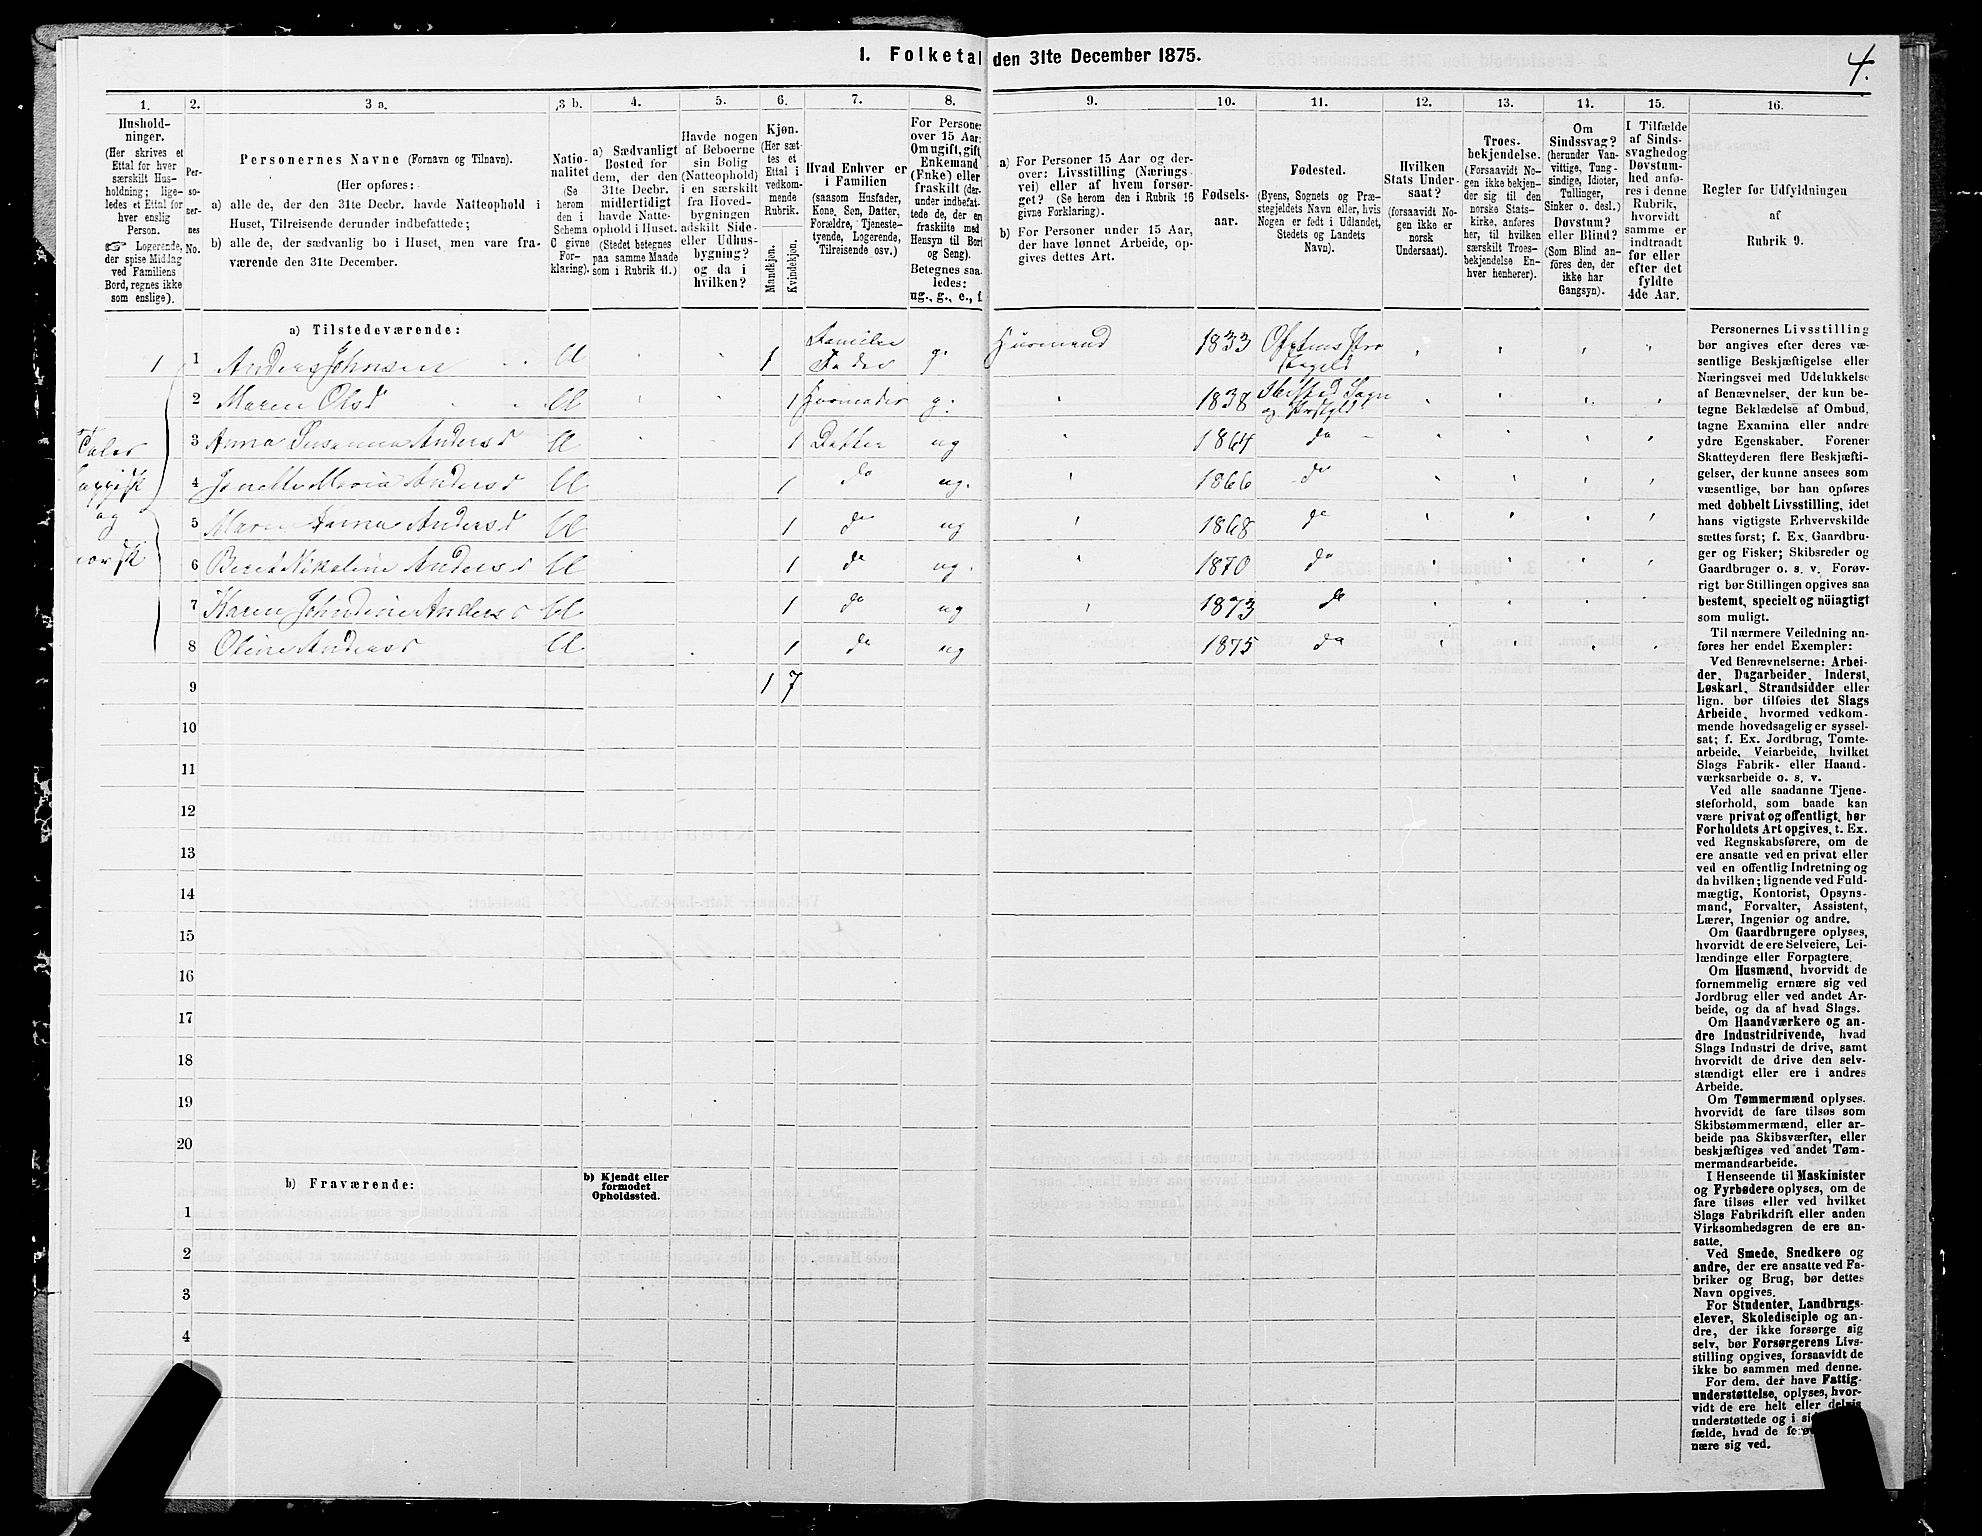 I. Folketal den 31te December 1875.
4.
1. 2. 3 a. 3 b. 4. 5. 6. 7. 8. 9. 10. 11. 12. 13. 14. 15. 16.
Hushold-
ninger.
(Her skrives et
Ettal for hver
særskilt Hus-
holdning; lige-
ledes et Ettal for
hver enslig
Person.
☞ Logerende,
der spise Middag
ved Familiens
Bord, regnes ikke
som enslige).
Per-
so-
ner-
nes
No.
Personernes Navne (Fornavn og Tilnavn).
(Her opføres:
a) alle de, der den 31te Decbr. havde Natteophold i
Huset, Tilreisende derunder indbefattede;
b) alle de, der sædvanlig bo i Huset, men vare fra-
værende den 31te December.
Natio-
nalitet
(Se
herom
den i
Schema
C givne
For-
klaring).
a) Sædvanligt
Bosted for
dem, der den
31te Decbr.
midlertidigt
havde Natte-
ophold i Huset.
(Stedet betegnes
paa samme Maade
som i Rubrik 11.)
Havde nogen
af Beboerne
sin Bolig
(Natteophold)
i en særskilt
fra Hoved-
bygningen
adskilt Side-
eller Udhus-
bygning?
og da i
hvilken?
Kjøn.
(Her sæt-
tes et
Ettal i
vedkom-
mende
Rubrik.
Mandkjøn.
Kvindekjøn.
Hvad Enhver er
i Familien
(saasom Husfader,
Kone, Søn, Datter,
Forældre, Tjeneste-
tyende, Logerende,
Tilreisende osv.)
For Personer
over 15 Aar:
Om ugift, gift,
Enkemand
(Enke) eller
fraskilt (der-
under indbefat-
tede de, der ere
fraskilte med
Hensyn til Bord
og Seng).
Betegnes saa-
ledes:
ug., g., e., f.
a) For Personer 15 Aar og der-
over: Livsstilling (Nærings-
vei) eller af hvem forsør-
get? (Se herom den i Rubrik 16
givne Forklaring).
b) For Personer under 15 Aar,
der have lønnet Arbeide, op-
gives dettes Art.
Fødsels-
aar.
Fødested.
(Byens, Sognets og Præ-
stegjeldets Navn eller, hvis
Nogen er født i Udlandet,
Stedets og Landets
Navn).
Hvilken
Stats Under-
saat?
(forsaavidt No-
gen ikke er
norsk
Undersaat).
Troes-
bekjendelse.
(Forsaavidt No-
gen ikke bekjen-
der sig til den
norske Stats-
kirke, anføres
her, til hvilken
særskilt Troes-
bekjendelse En-
hver henhører).
Om
Sindssvag?
(herunder Van-
vittige, Tung-
sindige, Idioter,
Tullinger,
Sinker o. desl.)
Døvstum?
eller Blind?
(Som Blind an-
føres den, der
ikke har
Gangsyn).
I Tilfælde
af Sinds-
svaghed og
Døvstum-
hed anfø-
res i denne
Rubrik,
hvorvidt
samme er
indtraadt
før eller
efter det
fyldte
4de Aar.
Regler for Udfyldningen
af
Rubrik 9.
a) Tilstedeværende:
1 1 Anders Johnsen U 1 Familie Fader g. Husmand 1833 Præstegjeld
2 Maren Olsd U 1 Husmoder g. 1838 Ibestad Sogn og Prstgld
3 Anna Susanna Andersd U 1 Datter ug 1864 do
4 Janette Maria Andersd U 1 do ug. 1866 do
5 Maren Anna Andersd U 1 do ug 1868 do
6 Berit Nikoline Andersd U 1 do ug. 1870 do
7 Karen Johndine Andersd U 1 do ug 1873 do
8 Oline Andersd U 1 do ug 1875 do
Taler
lappisk
og
norsk
9 1 7
10
11
12
13
14
15
16
17
18
19
20
b) Fraværende:
b) Kjendt eller
formodet
Opholdssted.
1
2
3
4
Personernes Livsstilling
bør angives efter deres væ-
sentlige Beskjæftigelse eller
Næringsvei med Udelukkelse
af Benævnelser, der kun be-
tegne Beklædelse af Ombud,
tagne Examina eller andre
ydre Egenskaber. Forener
Skatteyderen flere Beskjæfti-
gelser, der kunne ansees som
væsentlige, bør han opføres
med dobbelt Livsstilling, idet
hans vigtigste Erhvervskilde
sættes først; f. Ex. Gaardbru-
ger og Fisker; Skibsreder og
Gaardbruger o. s. v. Forøv-
rigt bør Stillingen opgives saa
bestemt, specielt og nöiagtigt
som muligt.
Til nærmere Veiledning an-
føres her endel Exempler:
Ved Benævnelserne: Arbei-
der, Dagarbeider, Inderst,
Løskarl, Strandsidder eller
lign. bør tilføies det Slags
Arbeide, hvormed vedkom-
mende hovedsagelig er syssel-
sat; f. Ex. Jordbrug, Tomte-
arbeide, Veiarbeide, hvilket
Slags Fabrik- eller Haand-
værksarbeide o. s. v.
Ved alle saadanne Tjene-
steforhold, som baade kan
være privat og offentligt, bør
Forholdets Art opgives, t. Ex.
ved Regnskabsførere, om de
ere ansatte ved en privat eller
ved en offentlig Indretning og
da hvilken; lignende ved Fuld-
mægtig, Kontorist, Opsyns-
mand, Forvalter, Assistent,
Lærer, Ingeniør og andre.
Om Gaardbrugere oplyses,
hvorvidt de ere Selveiere, Lei-
lændinge eller Forpagtere.
Om Husmænd, hvorvidt de
fornemmelig ernære sig ved
Jordbrug eller ved andet Ar-
beide, og da af hvad Slags.
Om Haandværkere og an-
dre Industridrivende, hvad
Slags Industri de drive, samt
hvorvidt de drive den selv-
stændigt eller ere i andres
Arbeide.
Om Tømmermænd oplyses,
hvorvidt de fare tilsøs som
Skibstømmermænd, eller ar-
beide paa Skibsværfter, eller
beskjæftiges ved andet Tøm-
mermandsarbeide.
I Henseende til Maskinister
og Fyrbødere oplyses, om de
fare tilsøs eller ved hvilket
Slags Fabrikdrift eller anden
Virksomhedsgren de ere an-
satte.
Ved Smede, Snedkere og
andre, der ere ansatte ved Fa-
briker og Brug, bør dettes
Navn opgives.
For Studenter, Landbrugs-
elever, Skoledisciple og an-
dre, der ikke forsørge sig
selv, bør Forsørgerens Livs-
stilling opgives, forsaavidt de
ikke bo sammen med denne.
For dem, der have Fattig-
understøttelse, oplyses, hvor-
vidt de ere helt eller delvis
understøttede og i
fælde, hvad de
nære sig ved.